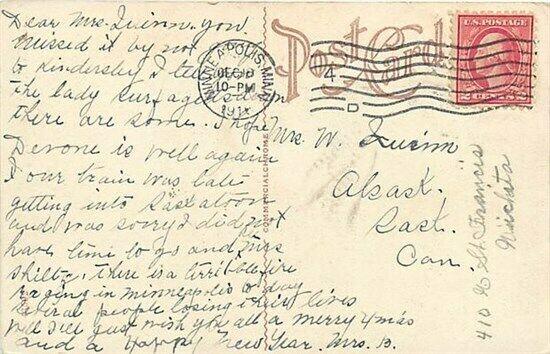 Dear Mrs. Quinn. you
missed it by not
to Kindersley I tell
the lady
there are some. I hope
is well again
our train was late
getting into Saskatoon
and was sorry I did not
have time to go and
there is a terrible fire
raging in Minneapolis to day
several people losing their lives
Will I'll just wish you all a merry Xmas
and a Happy New Year. Mrs. B.
Post Card
MINNEAPOLIS, MINN.
DEC
10-PM
4
D
U.S. POSTAGE
COMMERCIALCHROME
Mrs. W. Quinn
Alsask.
Sask.
Can.
410 E St. Francis
Wichita